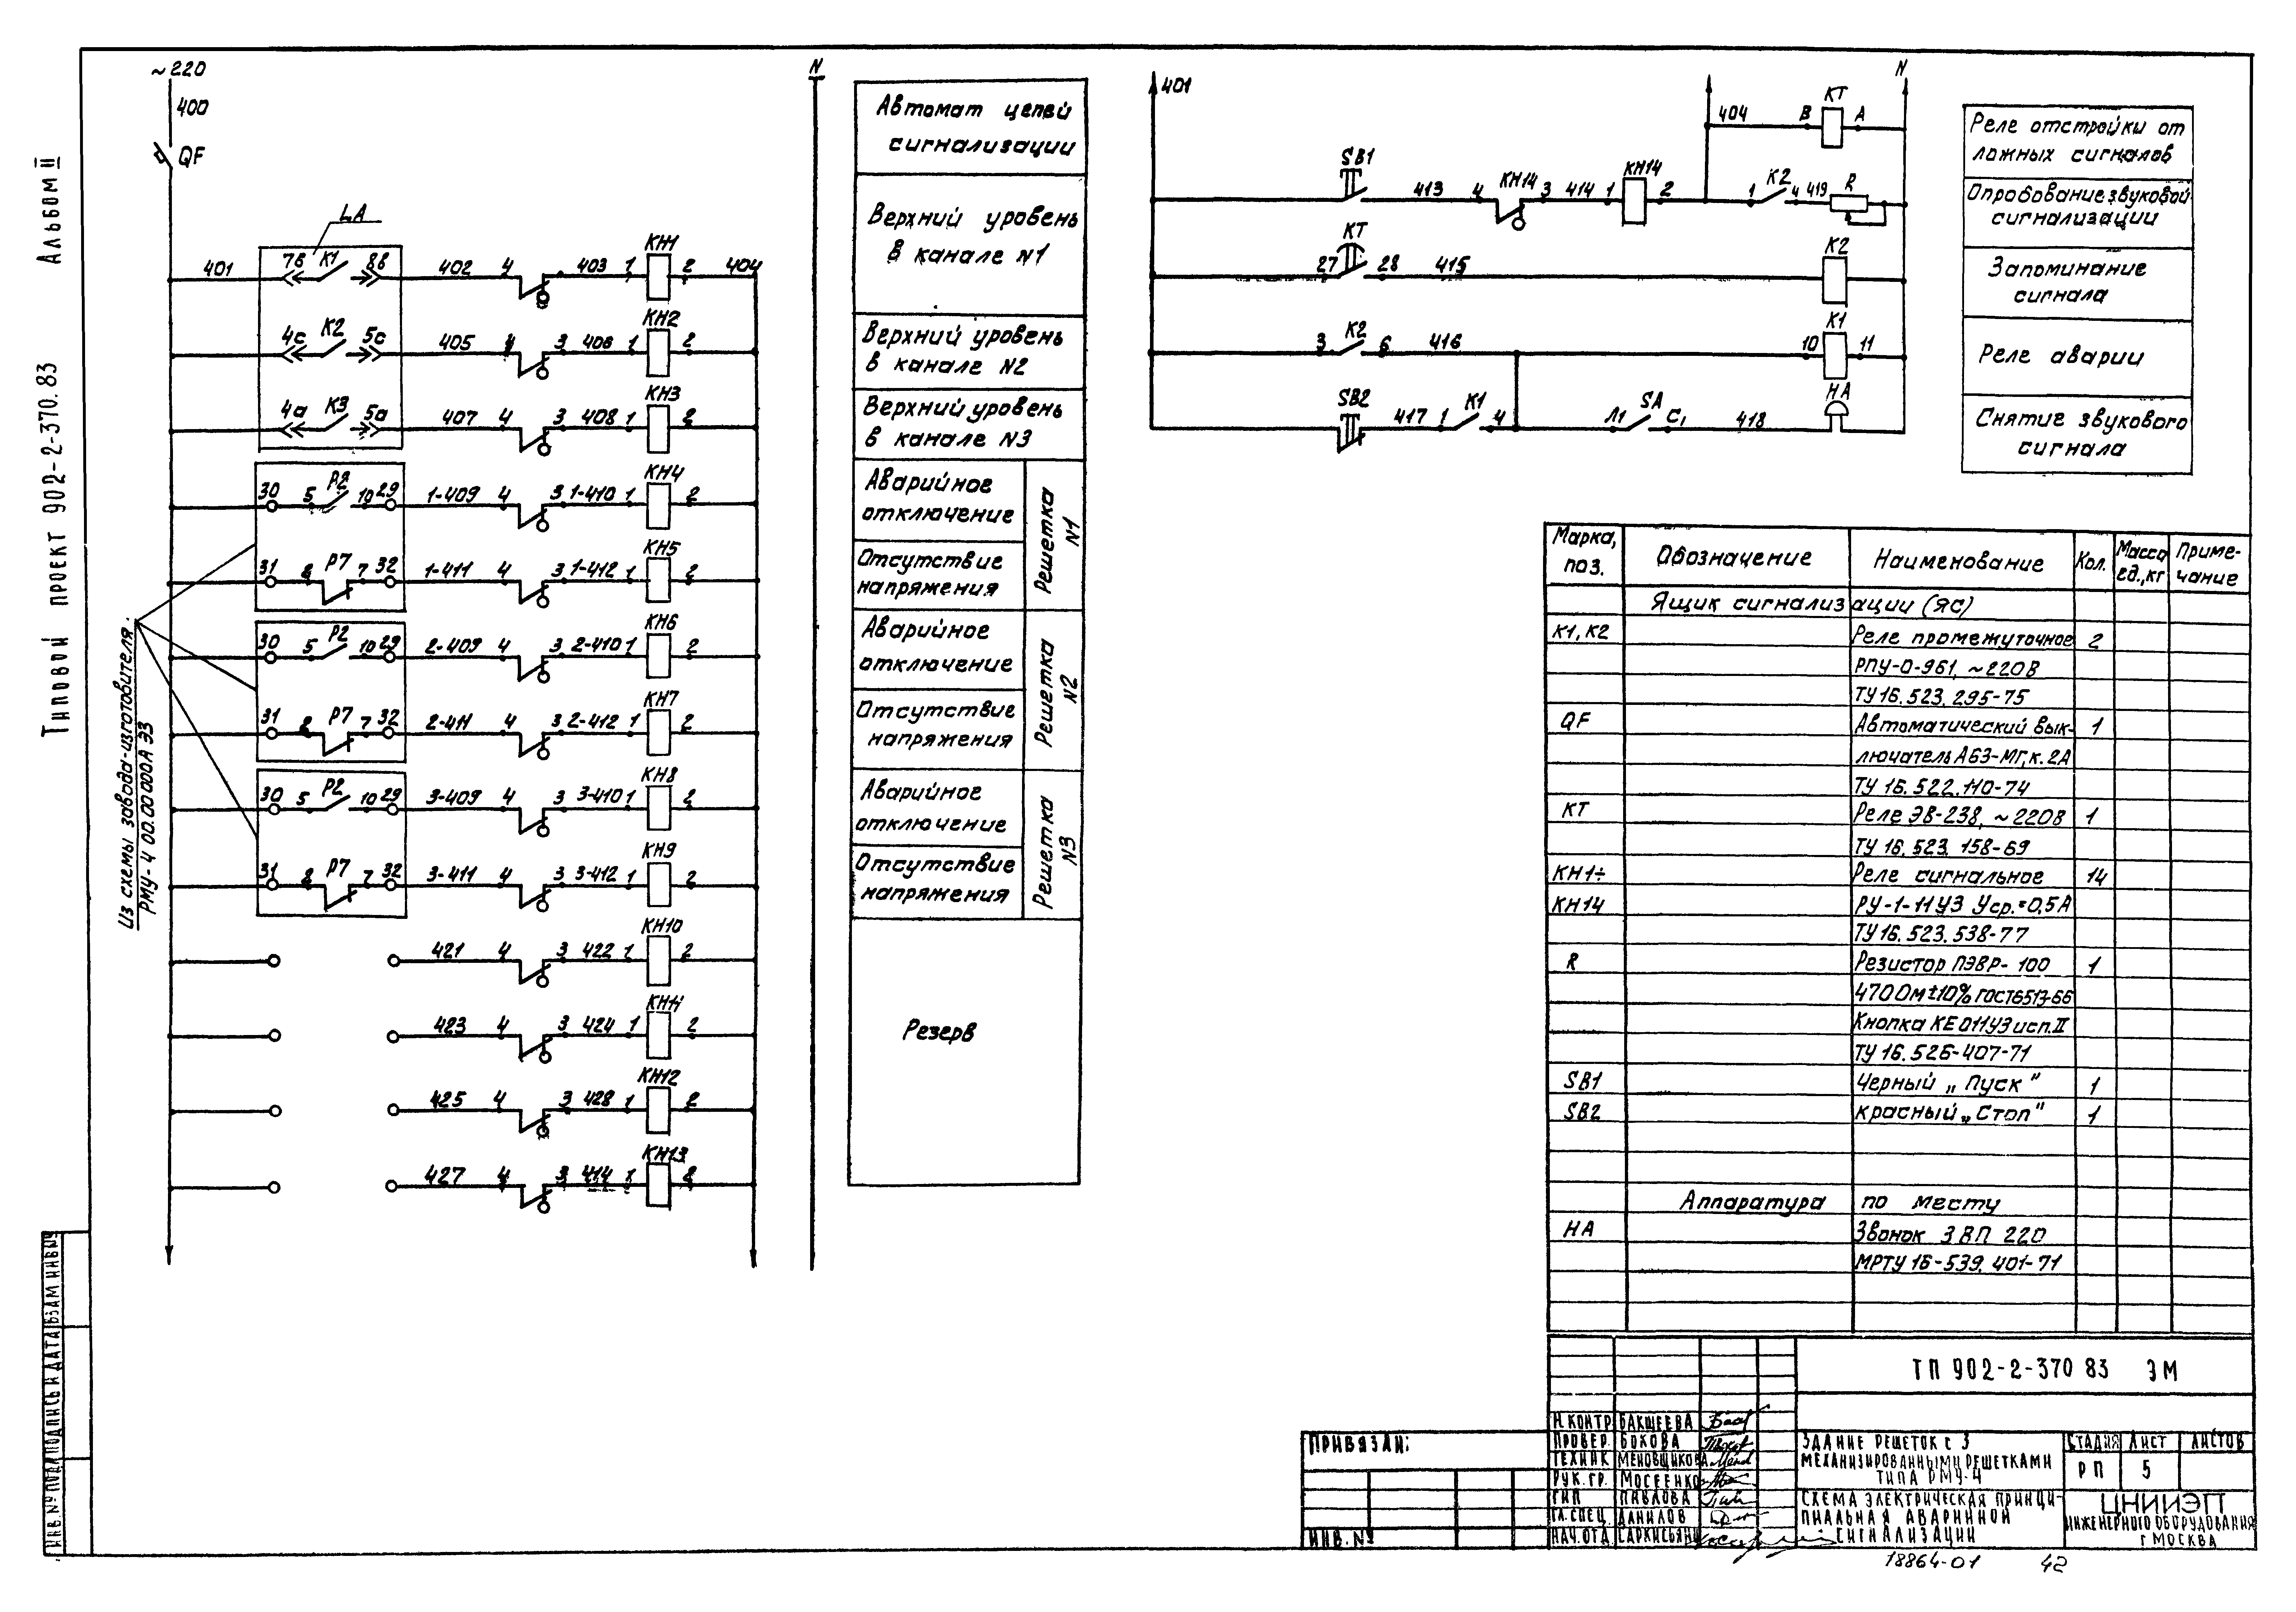 Типовой проект 902-2-370.83 Альбом II
~220
400
QF
N
LA
401 7в К1 8в 402 4 403 1 КН1 2 404
4с К2 5с 405 4 3 406 1 КН2 2
4а К3 5а 407 4 3 408 1 КН3 2
30 5 Р2 10 29 1-409 4 3 1-410 1 КН4 2
31 8 Р7 7 32 1-411 4 3 1-412 1 КН5 2
30 5 Р2 10 29 2-409 4 3 2-410 1 КН6 2
31 8 Р7 7 32 2-411 4 3 2-412 1 КН7 2
30 5 Р2 10 29 3-409 4 3 3-410 1 КН8 2
31 8 Р7 7 32 3-411 4 3 3-412 1 КН9 2
421 4 3 422 1 КН10 2
423 4 3 424 1 КН11 2
425 4 3 428 1 КН12 2
427 4 3 414 1 КН13 2
Из схемы завода-изготовителя.
РМУ-4 00.00 000А ЭЗ
Автомат цепей
сигнализации
Верхний уровень
в канале N1
Верхний уровень
в канале N2
Верхний уровень
в канале N3
Аварийное
отключение
Отсутствие
напряжения
Решетка
N1
Аварийное
отключение
Отсутствие
напряжения
Решетка
N2
Аварийное
отключение
Отсутствие
напряжения
Решетка
N3
Резерв
401
N
404 В КТ А
SB1 413 4 КН14 3 414 1 КН14 2 1 К2 4 419 R
27 КТ 28 415 К2
3 К2 6 416 10 К1 11
SB2 417 1 К1 4 Л1 SA С1 418 НА
Реле отстройки от
ложных сигналов
Опробование звуковой
сигнализации
Запоминание
сигнала
Реле аварии
Снятие звукового
сигнала
Марка, поз. Обозначение Наименование Кол. Масса ед.,кг Приме-чание
Ящик сигнализации (ЯС)
К1, К2 Реле промежуточное 2
РПУ-0-961, ~220В
ТУ 16.523.295-75
QF Автоматический вык- 1
лючатель АБЗ-МГ, к.2А
ТУ 16.522.110-74
КТ Реле ЭВ-238, ~220В 1
ТУ 16.523.158-69
КН1÷ Реле сигнальное 14
КН14 РУ-1-11УЗ Уср.=0,5А
ТУ 16.523.538-77
R Резистор ПЭВР-100 1
470 Ом±10% ГОСТ6513-66
Кнопка КЕ011УЗ исп.II
ТУ 16.526-407-71
SB1 Черный „Пуск" 1
SB2 красный „Стоп" 1
Аппаратура по месту
НА Звонок ЗВП 220
МРТУ 16-539.401-71
ТП 902-2-370 83 ЭМ
Н.КОНТР БАКШЕЕВА
ПРОВЕР. БОКОВА
ТЕХНИК МЕНОВЩИКОВА
РУК.ГР. МОСЕЕНКО
ГИП ПАВЛОВА
ГЛ.СПЕЦ. ДАНИЛОВ
НАЧ.ОТД. САРКИСЬЯН
ЗДАНИЕ РЕШЕТОК С 3
МЕХАНИЗИРОВАННЫМИ РЕШЕТКАМИ
ТИПА РМУ-4
СХЕМА ЭЛЕКТРИЧЕСКАЯ ПРИНЦИ-
ПИАЛЬНАЯ АВАРИЙНОЙ
СИГНАЛИЗАЦИИ
СТАДИЯ ЛИСТ ЛИСТОВ
РП 5
ЦНИИЭП
ИНЖЕНЕРНОГО ОБОРУДОВАНИЯ
Г МОСКВА
ПРИВЯЗАН:
ИНВ.№
ИНВ.№ПОДЛ ПОДПИСЬ И ДАТА ВЗАМ ИНВ№
18864-01 42